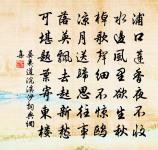 浦口蓮香夜不收
水邊風裏欲生秋
棹歌聲細不驚鷗
涼月送歸思往事
落英飄去起新愁
可堪題葉寄東樓
晏幾道浣溪沙詞典網